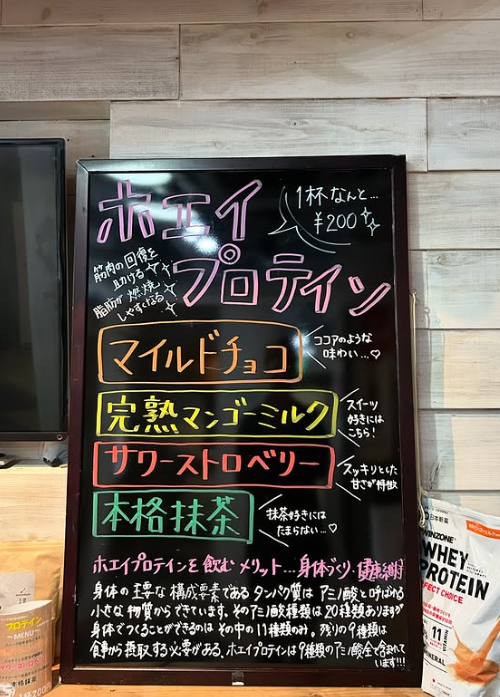 ホエイ
プロテイン
1杯なんと…
¥200
筋肉の回復を
助ける
脂肪が燃焼
しやすくなる
マイルドチョコ
ココアのような
味わい…♡
完熟マンゴーミルク
スイーツ
好きには
こちら!
サワーストロベリー
スッキリとした
甘さが特徴
本格抹茶
抹茶好きには
たまらない…♡
ホエイプロテインを飲むメリット…身体づくり・健康
身体の主要な構成要素であるタンパク質はアミノ酸と呼ばれる
小さな物質からできています。そのアミノ酸種類は20種類ありますが
身体でつくることができるのはその中の11種類のみ。残りの9種類は
食事から摂取する必要がある。ホエイプロテインは9種類のアミノ酸全て含まれて
います!!!
日本新薬
WINZONE
WHEY
PROTEIN
PERFECT CHOICE
11
MINERAL
プロテイン
MENU